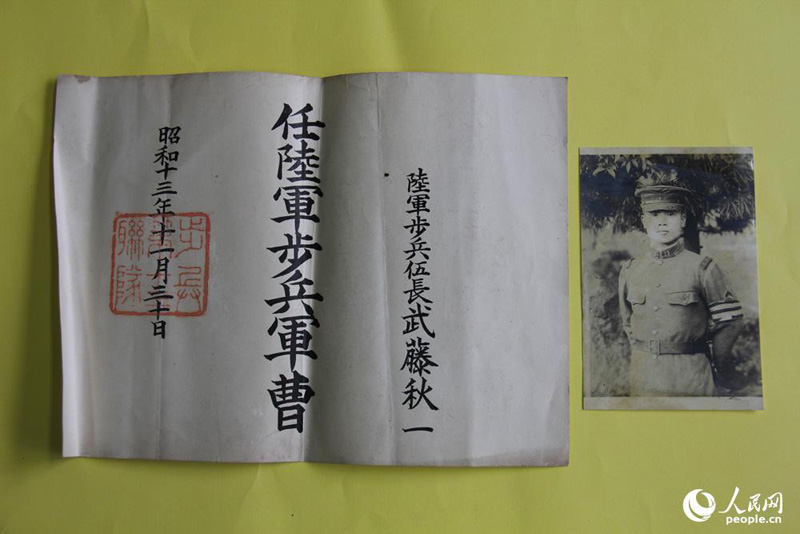 陸軍步兵伍長武藤秋一
任陸軍步兵軍曹
昭和十三年十一月三十日
步兵
聯隊
人民网
people.cn